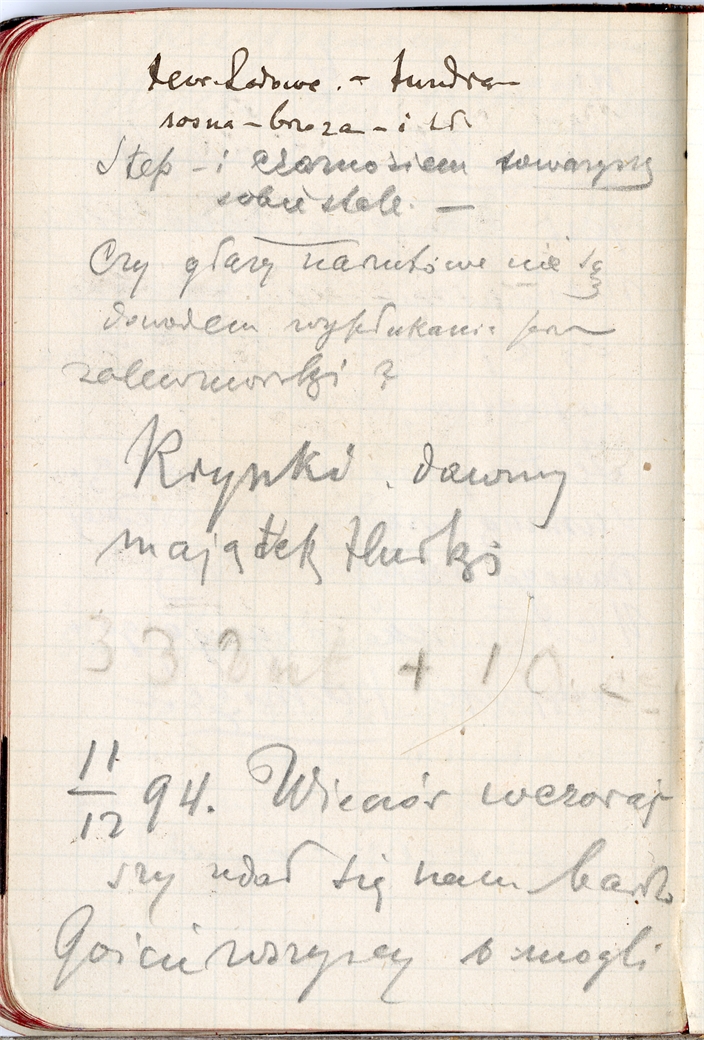 tundra
sosna – brzoza – i
Step – i czarnoziem towarzyszą
sobie stale. —
Czy głazy narzutowe nie są
dowodem wypłukania przez
zalew morski ?
Krynki . dawny
majątek
332 + 10.
11/12 94. Wieczór wczoraj
szy udał się nam bardzo
Goście wszyscy mogli